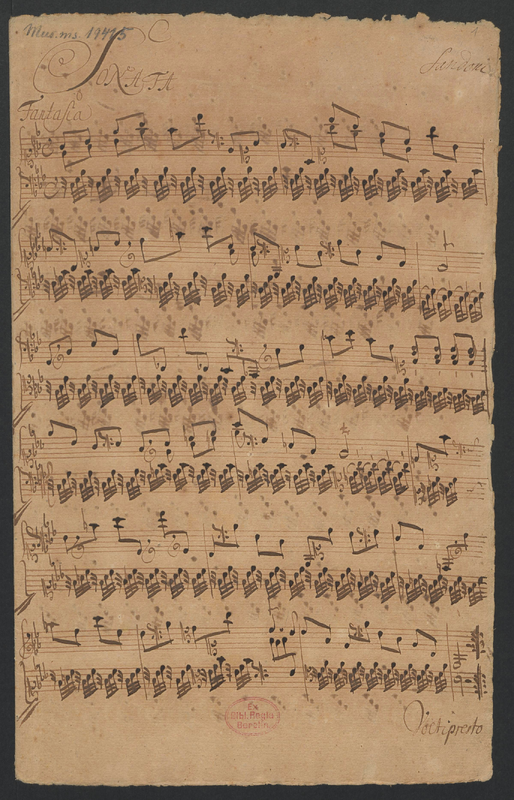 Mus.ms. 19415
SONATA
Sandoni
Fantasia
Ex
Bibl. Regia
Berolin.
Volti presto